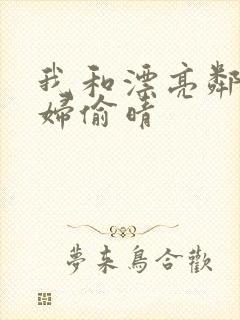 我和漂亮鄰
婦偷晴
夢来鳥合歡